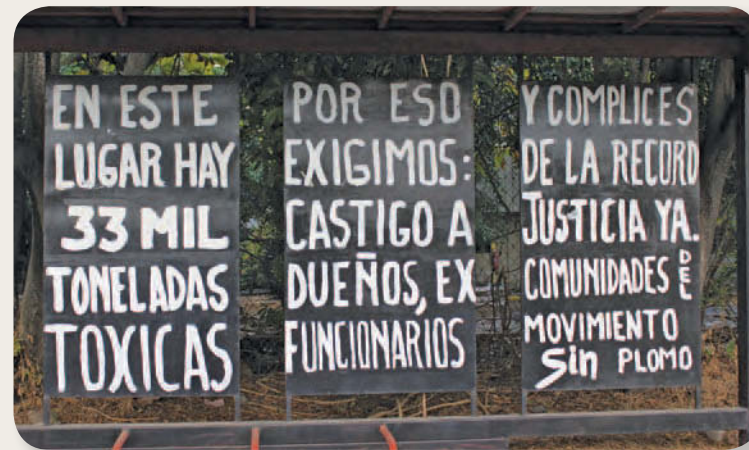 EN ESTE
LUGAR HAY
33 MIL
TONELADAS
TOXICAS
POR ESO
EXIGIMOS:
CASTIGO A
DUEÑOS, EX
FUNCIONARIOS
Y COMPLICES
DE LA RECORD
JUSTICIA YA.
COMUNIDADES DEL
MOVIMIENTO
Sin PLOMO